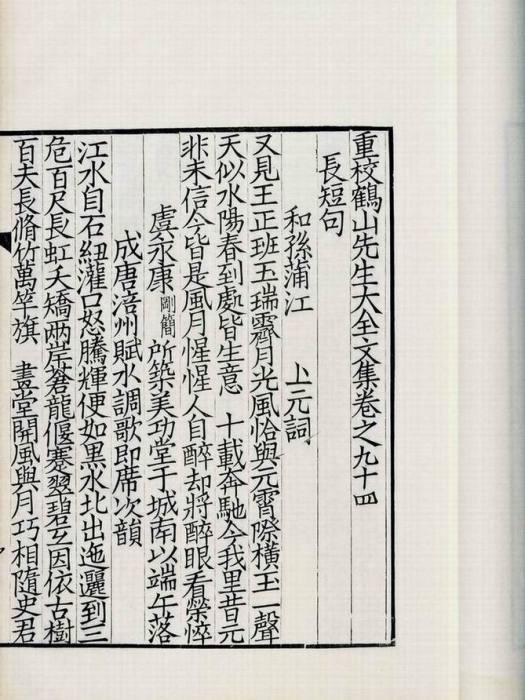 重校鶴山先生大全文集卷之九十四
長短句
和孫蒲江　上元詞
又見王正班玉瑞霽月光風恰與元宵際橫玉一聲
天似水陽春到處皆生意　十載奔馳今我里昔元
非未信今皆是風月惺惺人自醉却將醉眼看榮悴
虞永康剛簡所築美功堂于城南以端午落
成唐涪州賦水調歌即席次韻
江水自石紐灌口怒騰輝便如黑水北出迤邐到三
危百尺長虹夭矯兩岸蒼龍偃蹇翠碧互因依古樹
百夫長脩竹萬竿旗　晝堂開風與月巧相隨史君